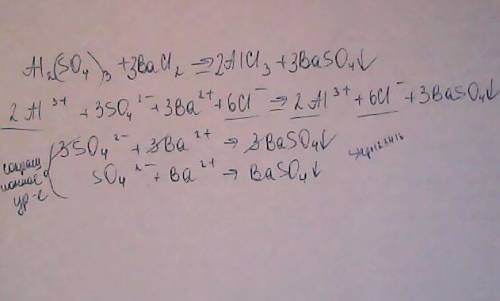 Al₂(SO₄)₃ + 3BaCl₂ ⇒ 2AlCl₃ + 3BaSO₄↓
2Al³⁺ + 3SO₄²⁻ + 3Ba²⁺ + 6Cl⁻ ⇒ 2Al³⁺ + 6Cl⁻ + 3BaSO₄↓
3SO₄²⁻ + 3Ba²⁺ → 3BaSO₄↓
SO₄²⁻ + Ba²⁺ → BaSO₄↓
ур-е